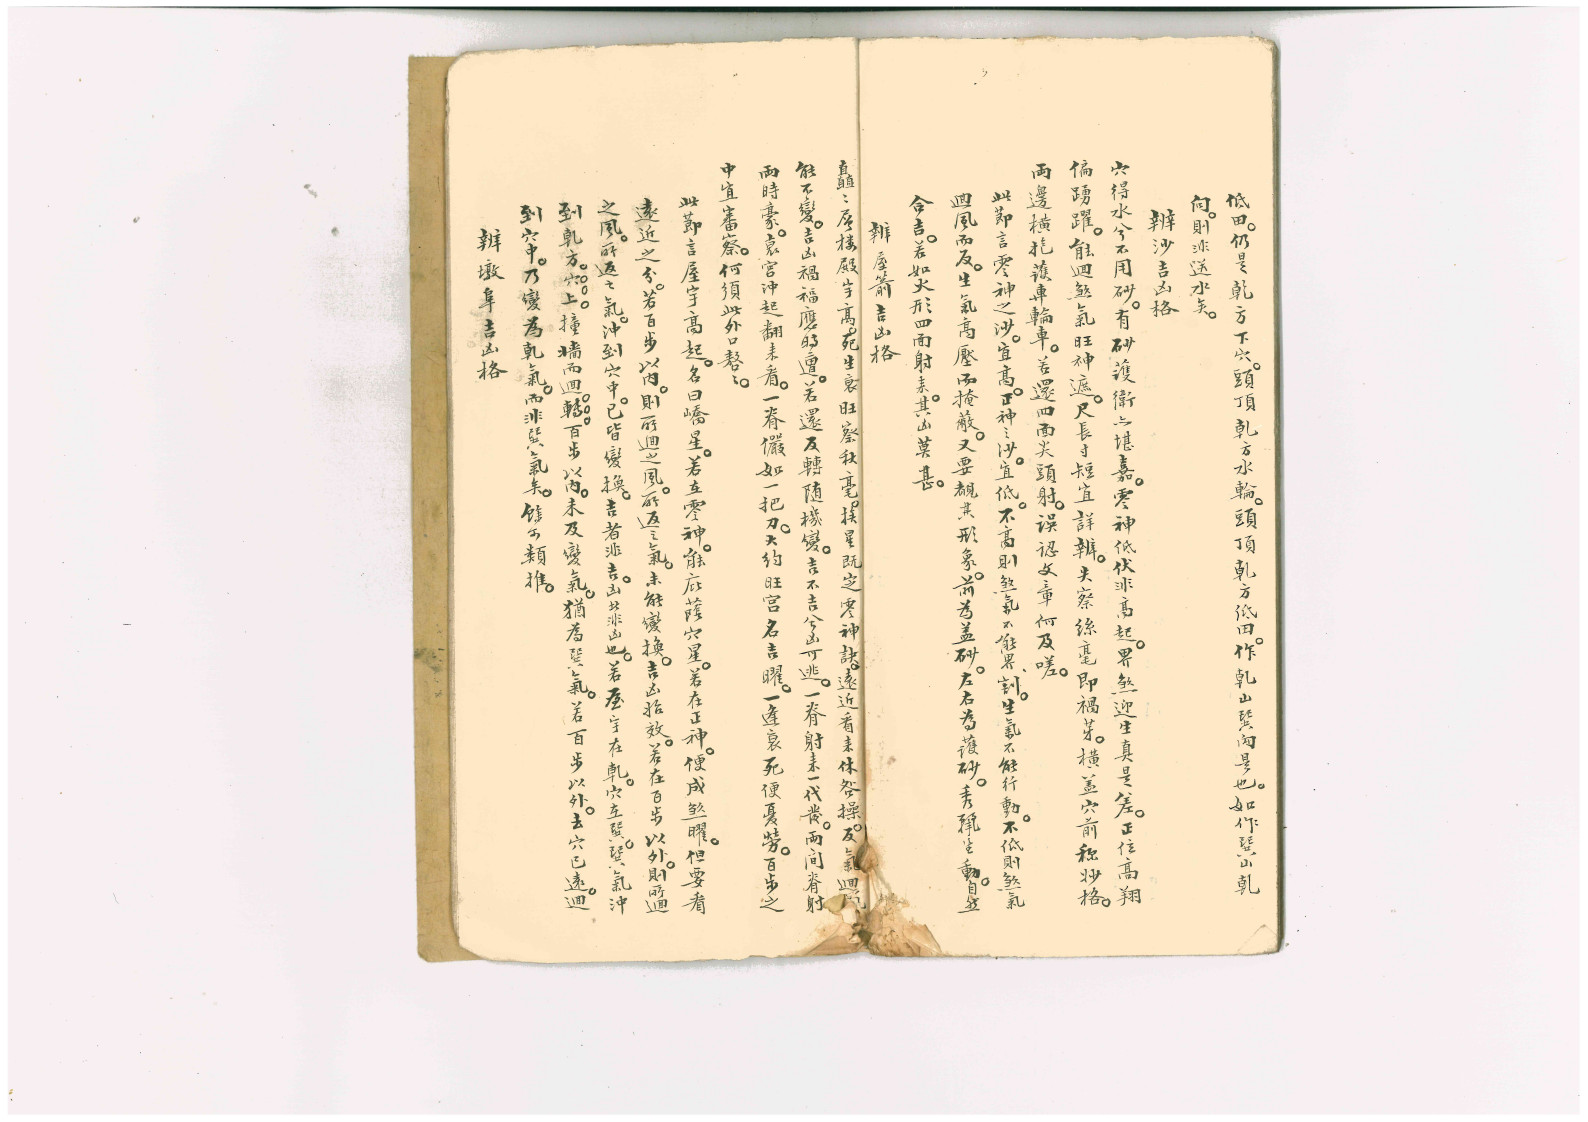 低田。仍是乾方下穴。頭頂乾方水輪。頭頂乾方低田。作乾山巽向是也。如作巽山乾
向。則非送水矣。
辨沙吉凶格
穴得水兮不用砂。有砂護衛亦堪嘉。零神低伏非高起。界煞迎生真是差。正位高翔
偏踴躍。能迴煞氣旺神遮。尺長寸短宜詳辨。失察絲毫即禍芽。橫蓋穴前称妙格。
両邊橫抱護車輪車。若還四面尖頭射。誤認文章何及嗟。
此節言零神之沙。宜高。正神之沙宜低。不高則煞氣不能界割。生氣不能行動。不低則煞氣
迴風而反。生氣高壓而掩蔽。又要覩其形象。前為蓋砂。左右為護砂。秀麗生動。自然
合吉。若如火形四面射来。其凶莫甚。
辨屋箭吉凶格
矗〻居楼殿宇高。死生衰旺察秋毫。挨星既定零神訣。遠近看来休咎操。反氣迴
能不變。吉凶禍福應時遭。若還反轉随機變。吉不吉兮凶可逃。一脊射来一代發。両间脊射
両時豪。衰宮沖起翻来看。一脊儼如一把刀。大約旺宮名吉曜。一逢衰死便憂勞。百步之
中宜審察。何須此外口嗸〻。
此節言屋宇高起。名曰嶠星。若在零神。能庇蔭穴星。若在正神。便成煞曜。但要看
遠近之分。若百步以内。則所迴之風。所返之氣。未能變換。吉凶始效。若在百步以外。則所迴
之風。所返之氣。沖到穴中。已皆變換。吉者非吉。凶者非凶也。若屋宇在乾。穴在巽。巽氣沖
到乾方。穴上撞墻而迴轉。百步以内。未及變氣。猶為巽氣。若百步以外。去穴已遠。迴
到穴中。乃變為乾氣。而非巽氣矣。餘可類推。
辨墩阜吉凶格